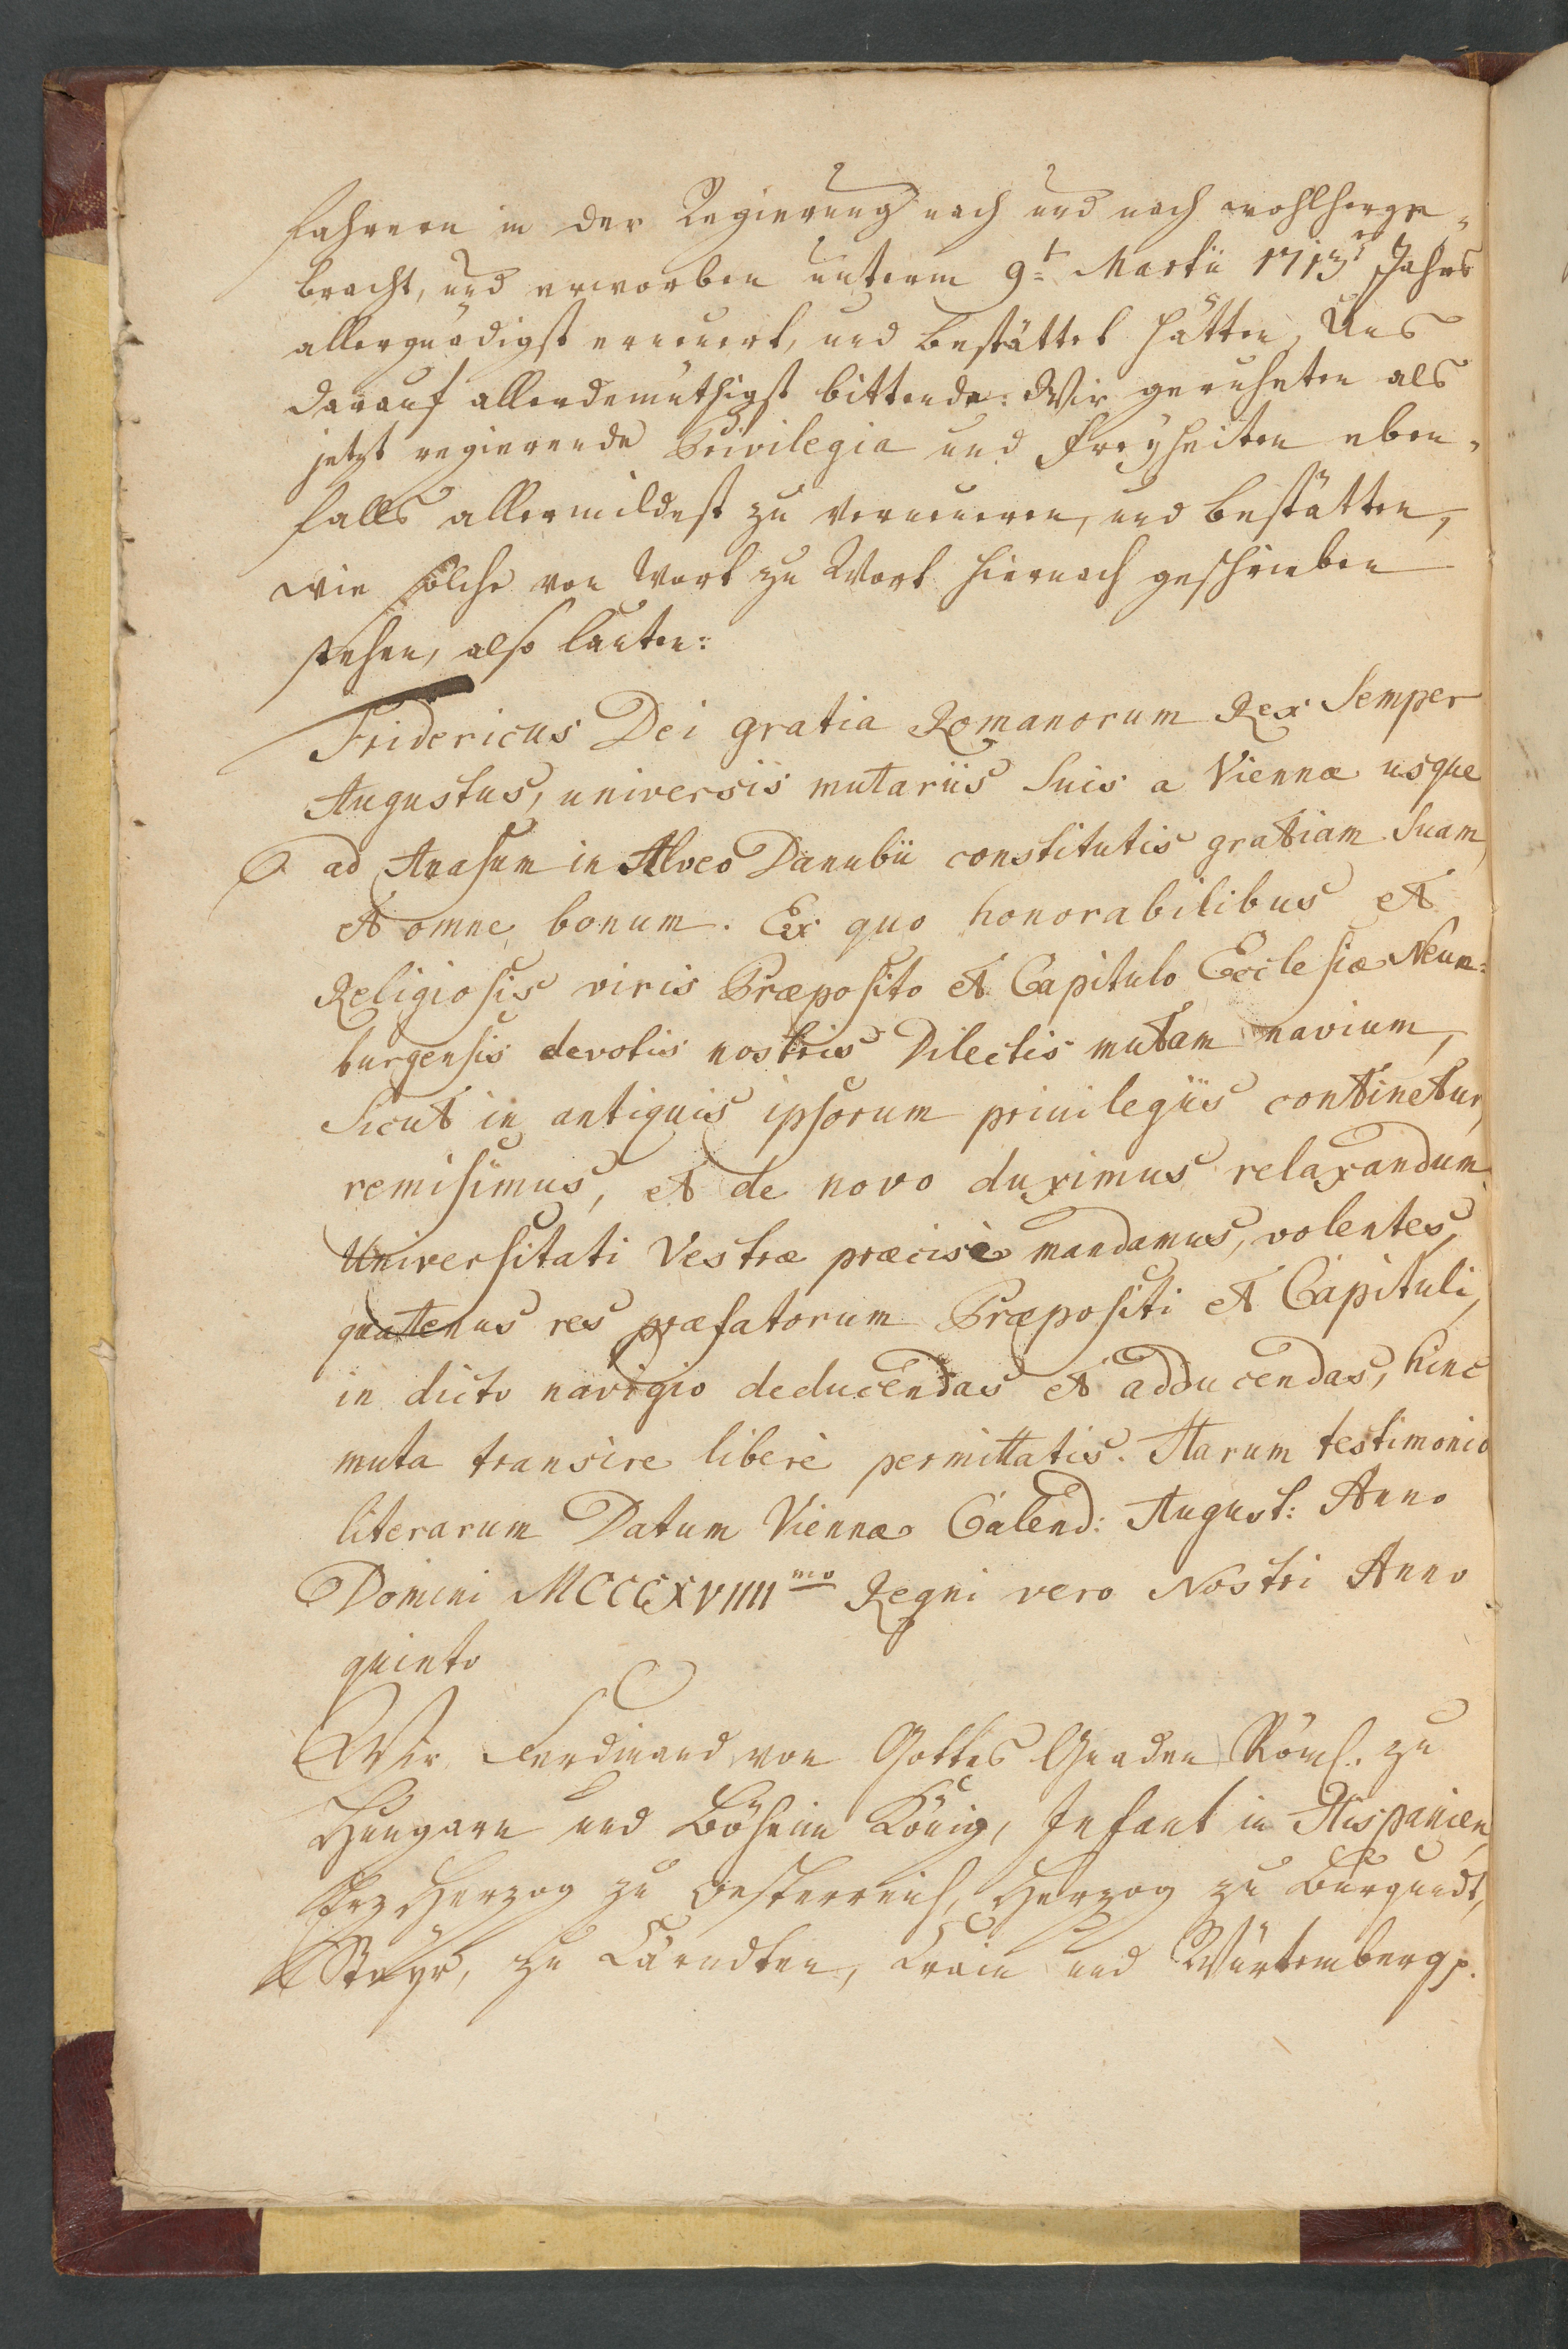 fahrern in der Regierung nach und nach wohlherge-
bracht, und erworben unterm 9t Martii 1713er Jahrs
allergnädigst erneuert, und bestättet hätten, Uns
darauf allerdemüthigst bittende: Wir geruheten als
jetzt regierende Privilegia und Freyheiten eben-
falls allermildest zu verneueren, und bestätten,
wie solche von Wort zu Wort hiernach geschrieben
stehen, also lauten:
Fridericus Dei gratia Romanorum Rex Semper
Augustus, universis mutariis Suis a Vienna usque
ad Anasum in Alveo Danubii constitutis gratiam Suam,
et omne bonum. Ex quo honorabilibus et
Religiosis viris Præposito et Capitulo Ecclesiæ Neum-
burgensis devotis nostris Dilectis mutam navium,
Sicut in antiquis ipsorum privilegiis continetur,
remisimus, et de novo duximus relaxandum.
Universitati Vestræ præcisè mandamus, volentes,
quatenus res præfatorum Præpositi et Capituli,
in dicto navigio deducendas et adducendas, hinc
muta transire liberè permittatis. Harum testimonio
literarum Datum Viennæ Calend: August: Anno
Domini MCCCXVIIIImo Regni vero Nostri Anno
quinto
Wir Ferdinand von Gottes Gnaden Röml. zu
Hungarn und Böheim König, Infant in Hispanien,
Erzherzog zu Oesterreich, Herzog zu Burgundt,
Steyr, zu Cärndten, Crain und Würtemberg p.